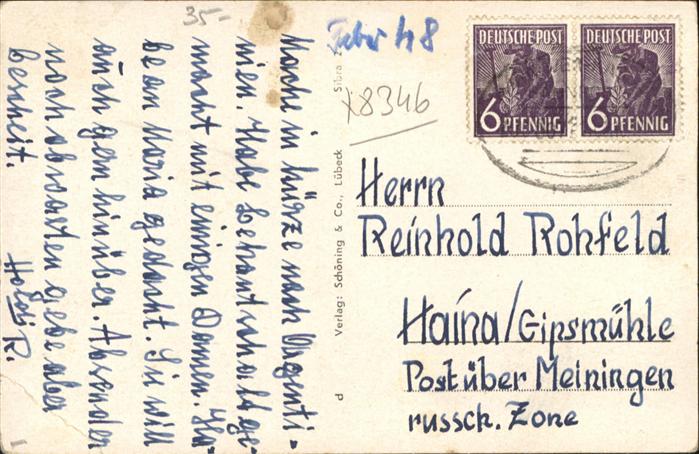 Komme in Kürze nach Argenti-
nien. Habe Bekantschaft ge-
macht mit einigen Damen. Ha-
be an Maria gedacht. Sie will
auch gern hinüber. Absender
noch abwarten gebe aber
bescheit.
R.
35-
Febr 48
x8346
DEUTSCHE POST
6 PFENNIG
DEUTSCHE POST
6 PFENNIG
Verlag: Schöning & Co., Lübeck
d
Herrn
Reinhold Rohfeld
Haina/Gipsmühle
Post über Meiningen
russch. Zone